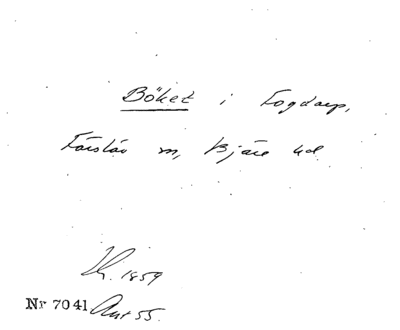 Böket i Fogdarp,
Förslöv sn, Bjäre hd
1859
Nr 7041 Ant 55.